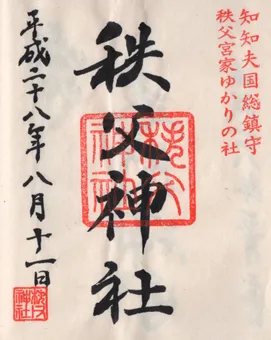 知知夫国総鎮守
秩父宮家ゆかりの社
秩父神社
平成二十八年八月十一日
秩父
神社
秩父
神社